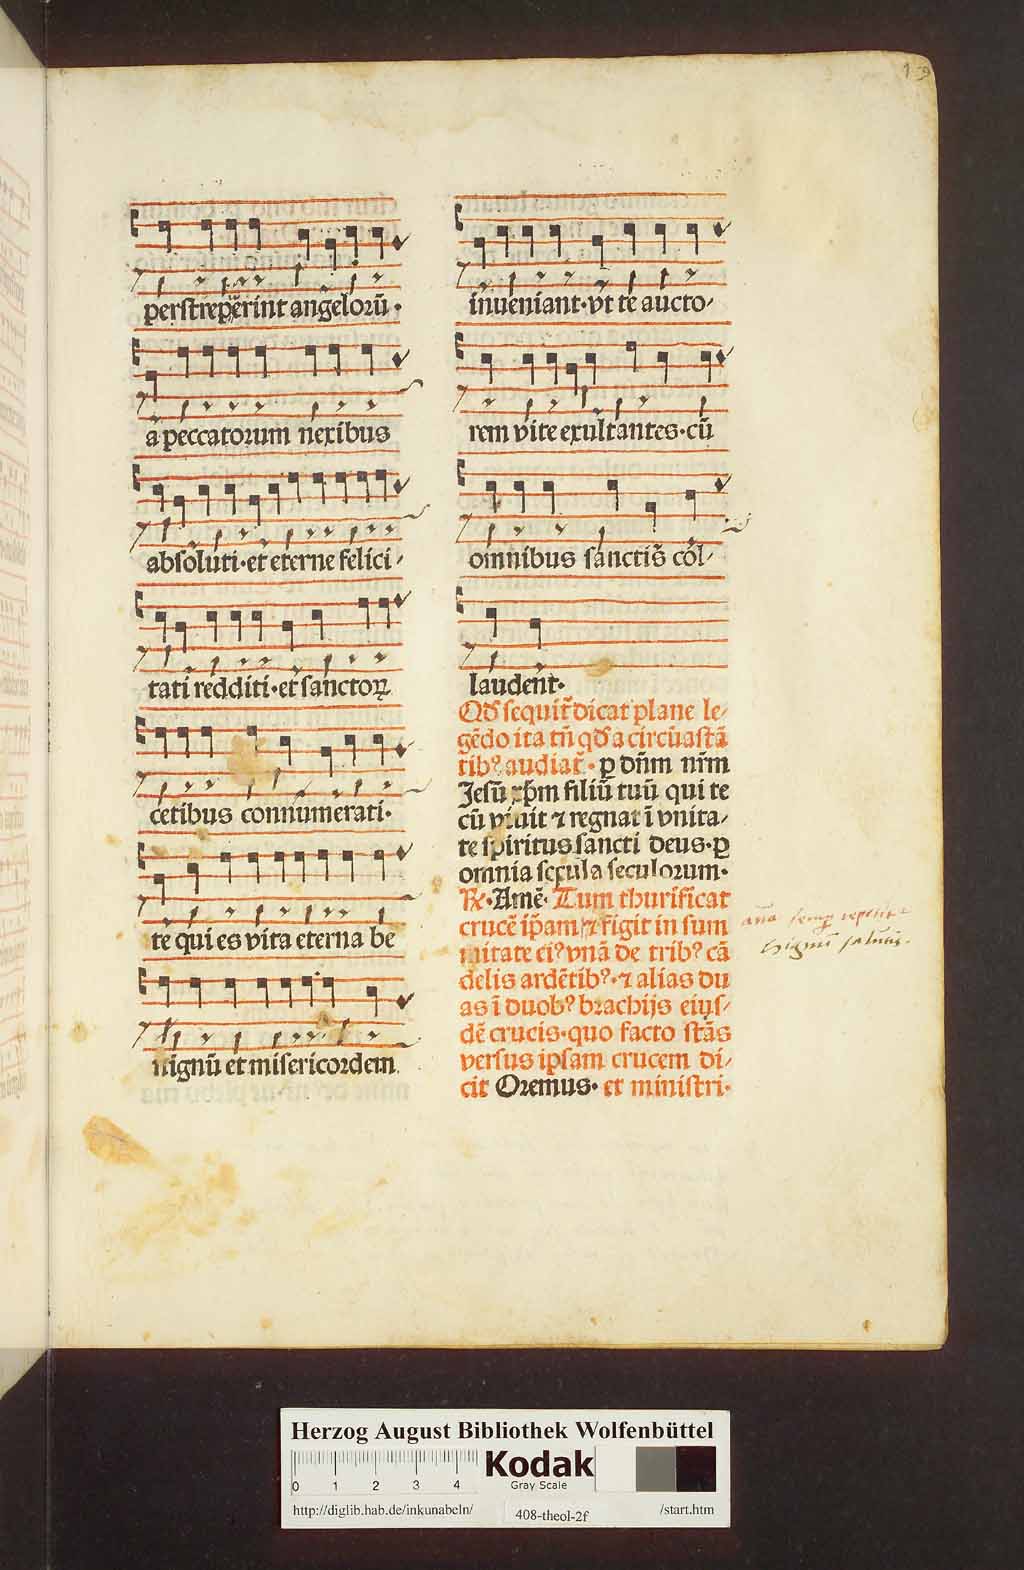 perstreperint angeloꝝ̃·
a peccatorum nexibus
absoluti·et eterne felici⸗
tati redditi·et sanctoꝝ
cetibus connumerati·
te qui es vita eterna be
nignũ et misericordem
inueniant·vt te aucto⸗
rem vite exultantes·cũ
omnibus sanctis col⸗
laudent·
Qđ sequit̃ dicat plane le⸗
gẽdo ita tñ qđ a circũastã
tibꝰ audiat̃· ꝑ dñm nr̃m
Jesũ xp̄m filiũ tuũ qui te
cũ viuit ⁊ regnat ĩ vnita⸗
te spiritus sancti deus·ꝑ
omnia secula seculorum·
℟·Amẽ· Tum thurificat
crucẽ ip̄am ⁊ figit in sum
mitate eiꝰ vnã de tribꝰ cã
delis ardẽtibꝰ·⁊ alias du
as ĩ duobꝰ brachijs eius⸗
dẽ crucis·quo facto stãs
versus ipsam crucem di⸗
cit Oremus· et ministri·
Herzog August Bibliothek Wolfenbüttel
0 1 2 3 4
Kodak
Gray Scale
http://diglib.hab.de/inkunabeln/ 408-theol-2f /start.htm